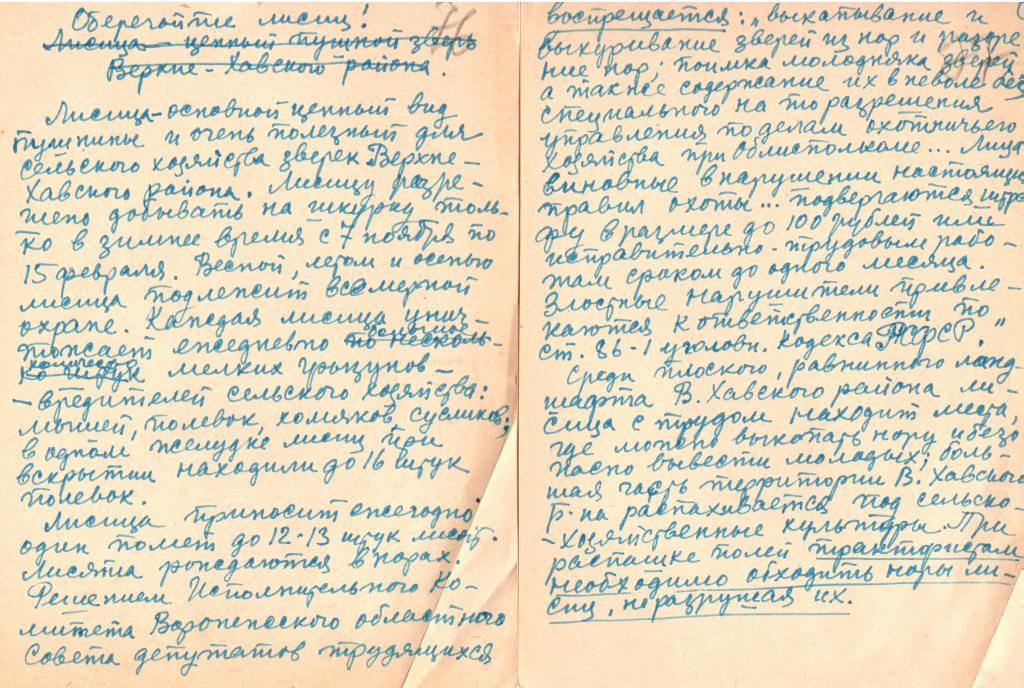 Оберегайте лисиц!
Лисица - ценный пушной зверь
Верхне-Хавского района.
Лисица-основной ценный вид
пушнины и очень полезный для
сельского хозяйства зверек Верхне-
Хавского района. Лисицу разре-
шено добывать на шкурку толь-
ко в зимнее время с 7 ноября по
15 февраля. Весной, летом и осенью
лисица подлежит всемерной
охране. Каждая лисица унич-
большое
тожает ежедневно по несколь-
количество
ко штук мелких грызунов -
- вредителей сельского хозяйства:
мышей, полевок, хомяков, сусликов;
в одном желудке лисиц при
вскрытии находили до 16 штук
полевок.
Лисица приносит ежегодно
один помет до 12-13 штук лисят.
Лисята рождаются в норах.
Решением Исполнительного Ко-
митета Воронежского областного
Совета депутатов трудящихся
воспрещается: „выкапывание и
выкуривание зверей из нор и разоре-
ние нор; поимка молодняка зверей,
а также содержание их в неволе без
специального на то разрешения
управления по делам охотничьего
хозяйства при Облисполкоме... Лица
виновные в нарушении настоящих
правил охоты... подвергаются штра-
фу в размере до 100 рублей или
исправительно-трудовым рабо-
там сроком до одного месяца.
Злостные нарушители привле-
каются к ответственности по
ст. 86-1 уголовн. кодекса РСФСР."
Среди плоского, равнинного ланд-
шафта В. Хавского района ли-
сица с трудом находит места,
где можно выкопать нору и безо-
пасно вывести молодых; боль-
шая часть территории В. Хавского
р-на распахивается под сельско-
-хозяйственные культуры. При
распашке полей трактористам
необходимо обходить норы ли-
сиц, не разрушая их.